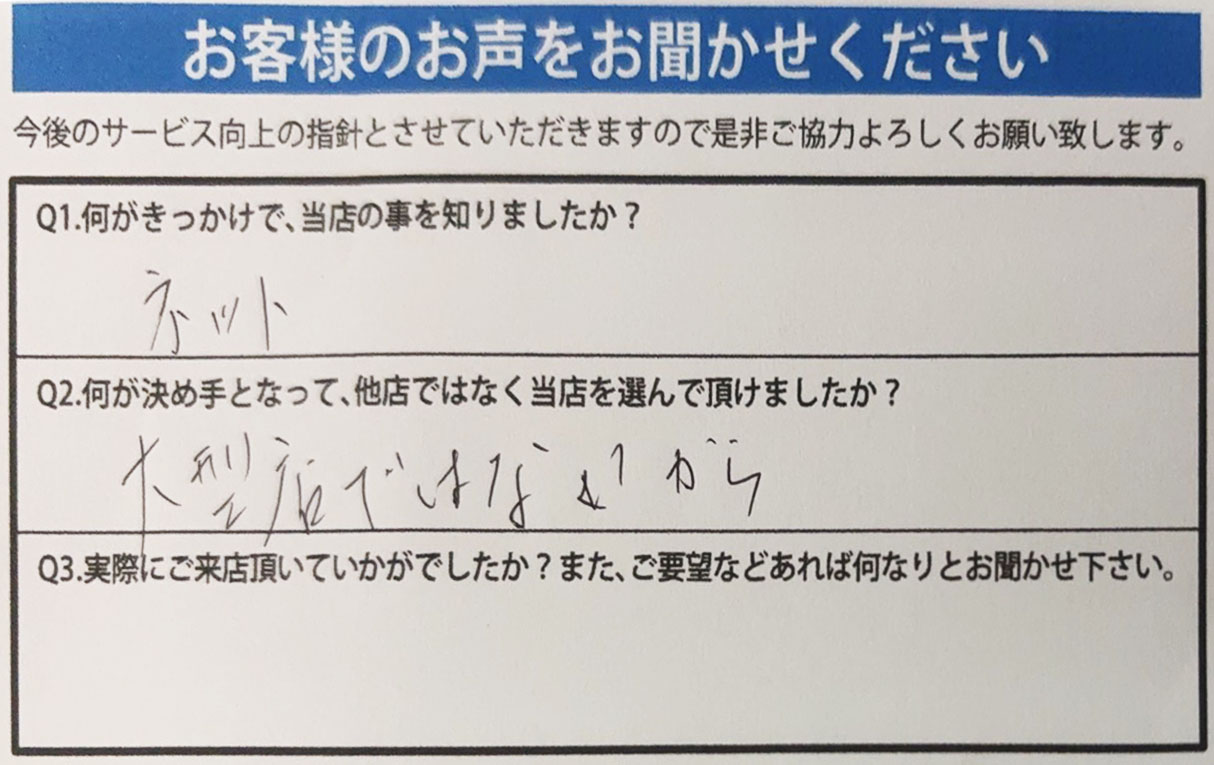 お客様のお声をお聞かせください
今後のサービス向上の指針とさせていただきますので是非ご協力よろしくお願い致します。
Q1.何がきっかけで、当店の事を知りましたか？
ネット
Q2.何が決め手となって、他店ではなく当店を選んで頂けましたか？
大型店ではないから
Q3.実際にご来店頂いていかがでしたか？また、ご要望などあれば何なりとお聞かせ下さい。